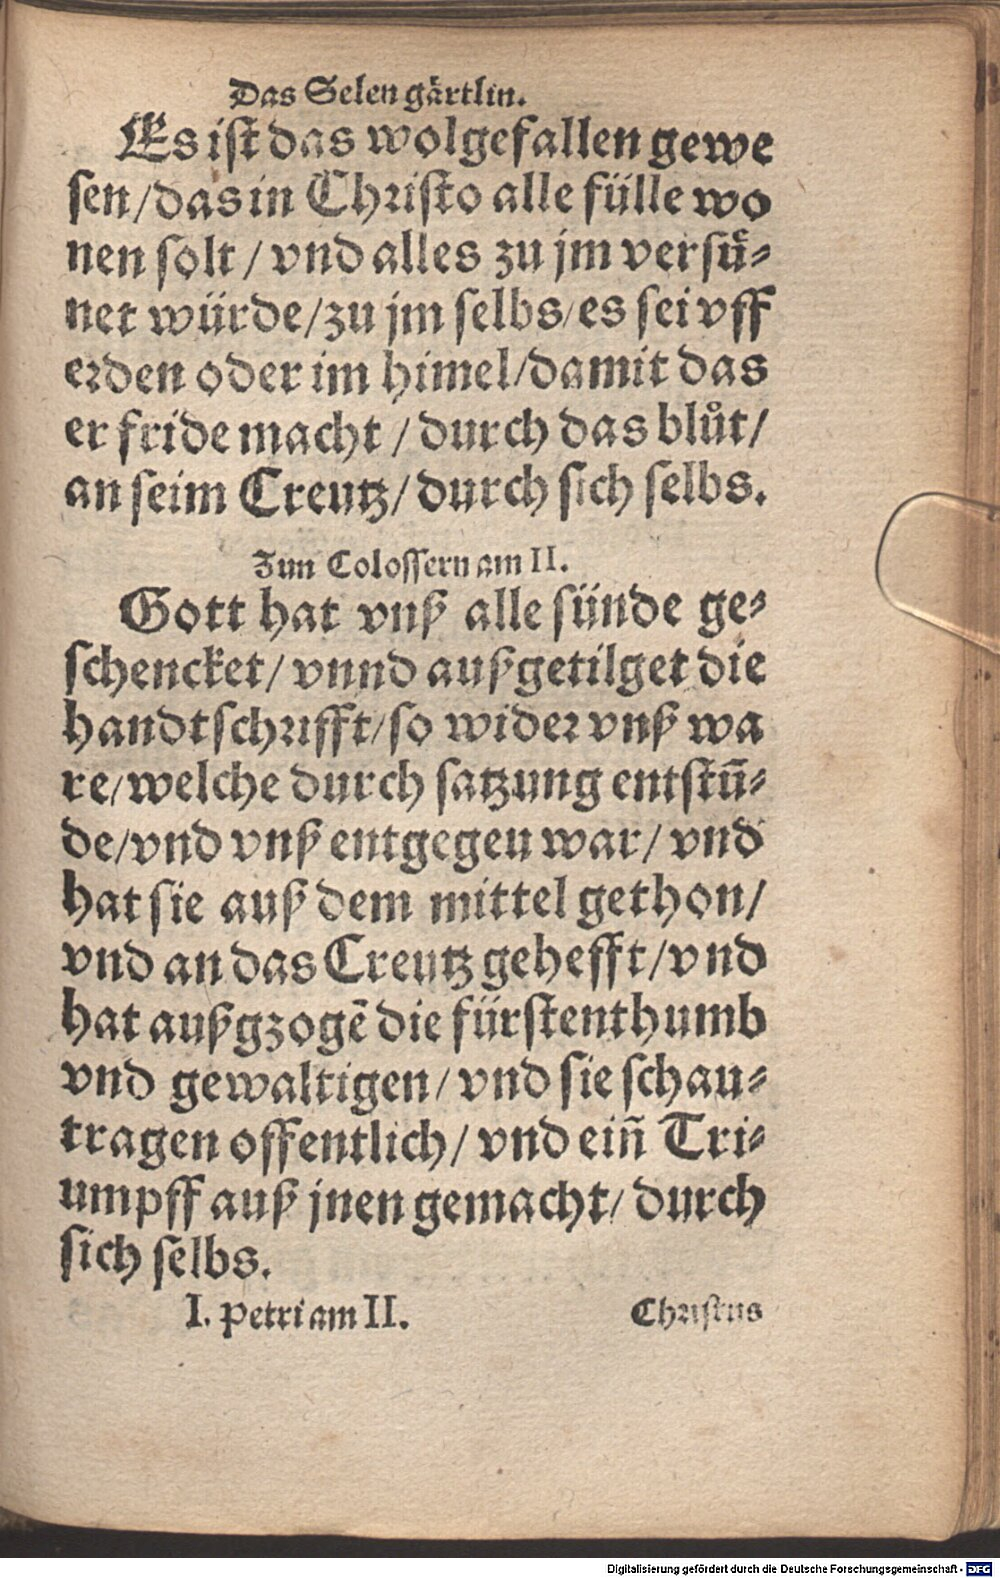 Das Selen gärtlin.
Es ist das wolgefallen gewe
sen/das in Christo alle fülle wo
nen solt / vnd alles zu jm versuͤ-
net würde/zu jm selbs/es sei vff
erden oder im himel/damit das
er fride macht / durch das bluͦt/
an seim Creutz/durch sich selbs.
Zun Colossern am II.
Gott hat vnß alle sünde ge-
schencket/ vnnd außgetilget die
handtschrifft/so wider vnß wa
re/welche durch satzung entstuñ-
de/vnd vnß entgegen war/ vnd
hat sie auß dem mittel gethon/
vnd an das Creutz gehefft/vnd
hat außgzogẽ die fürstenthumb
vnd gewaltigen/ vnd sie schau-
tragen offentlich/ vnd eiñ Tri-
umpff auß jnen gemacht/ durch
sich selbs.
I. Petri am II. Christus
Digitalisierung gefördert durch die Deutsche Forschungsgemeinschaft - DFG